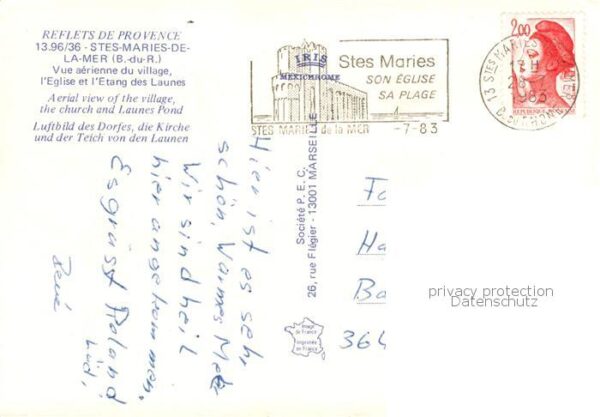 REFLETS DE PROVENCE
13.96/36 - STES-MARIES-DE-
LA-MER (B.-du-R.)
Vue aérienne du village,
l'Eglise et l'Etang des Launes
Aerial view of the village,
the church and Launes Pond
Luftbild des Dorfes, die Kirche
und der Teich von den Launen
IRIS
MEXICHROME
Stes Maries
SON ÉGLISE
SA PLAGE
STES MARIES de la MER
-7-83
2,00
13 STES MARIES
17 H
1983
B. DU RHONE
Société P. E. C.
26, rue Flégier - 13001 MARSEILLE
Image de France
Imprimée en France
Hier ist es sehr
schön, Warmes
Wir sind heil
hier angekommen.
Es grüsst Roland
und,
René
Fa
Ha
Ba
364
privacy protection
Datenschutz